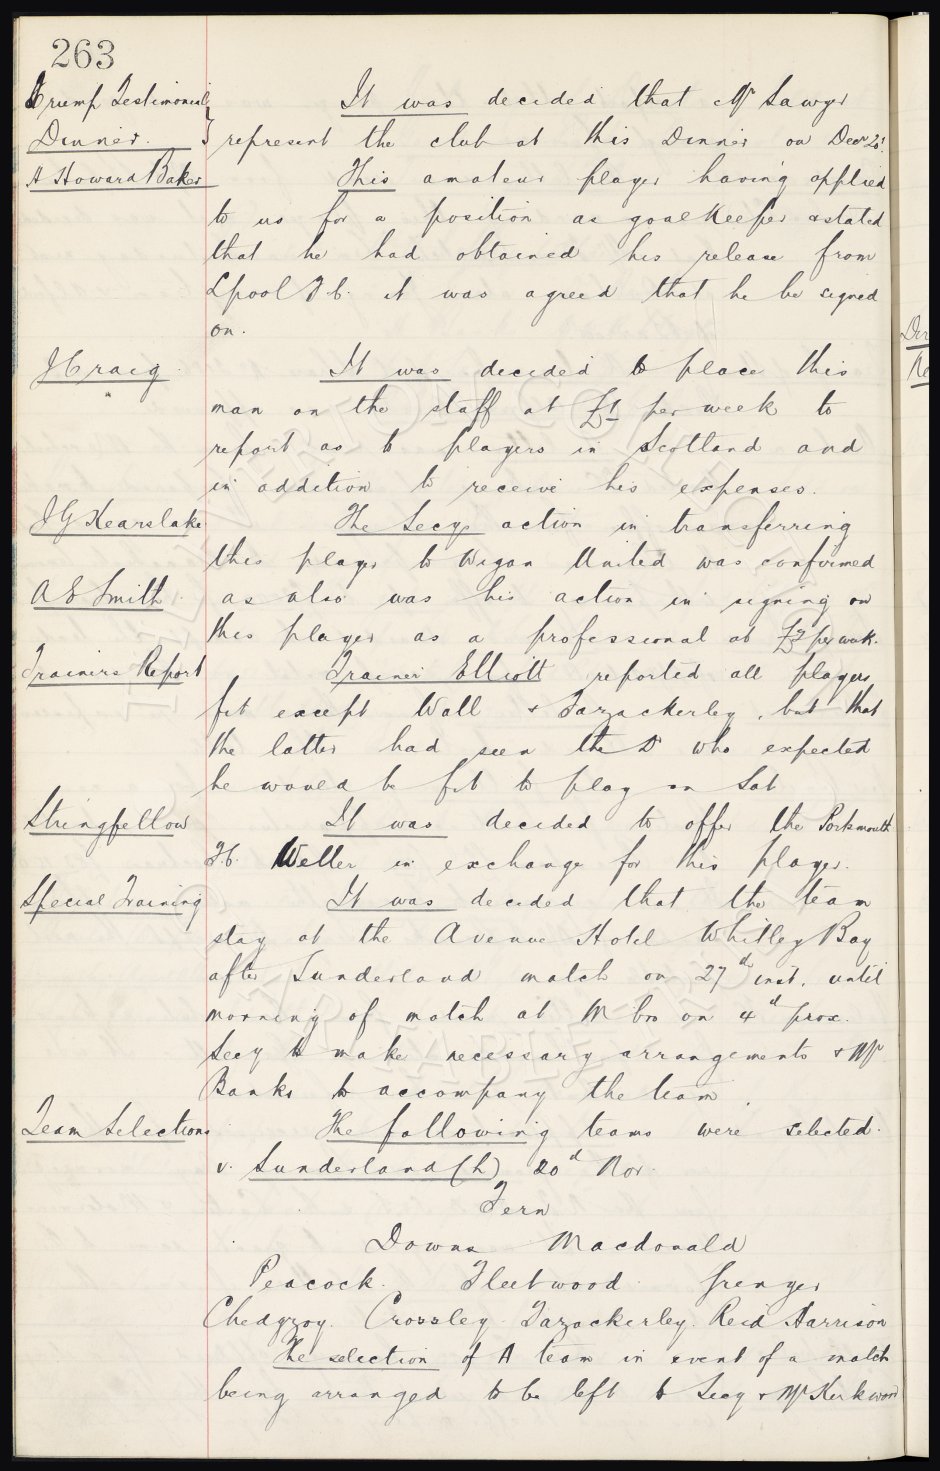 263
Crump Testimonial
Dinner.
It was decided that Mr Sawyer
represent the club at this Dinner on Decr
A Howard Baker
This amateur player having applied
to us for a position as goalkeeper & stated
that he had obtained his release from
Lpool F C. it was agreed that he be signed
on.
J Craig
It was decided to place this
man on the staff at £1 per week to
report as to players in Scotland and
in addition to receive his expenses.
J G Kearslake
The Secys action in transferring
this player to Wigan United was confirmed
A E Smith
as also was his action in signing on
this player as a professional at per week.
Trainers Report
Trainer Elliott reported all players
fit except Wall & Fazackerley, but that
the latter had seen the Dr who expected
he would be fit to play on Sat
Stringfellow
It was decided to offer the Portsmouth
F C. Weller in exchange for this player.
Special Training
It was decided that the team
stay at the Avenue Hotel Whitley Bay
after Sunderland match on 27th inst. until
morning of match at M bro on 4th prox.
Secy to make necessary arrangements & Mr
Banks to accompany the team.
Team Selections
The following teams were selected.
v. Sunderland (h) 20th Nov.
Fern
Downs Macdonald
Peacock. Fleetwood Grenyer
Chedgzoy. Crossley. Fazackerley. Reid Harrison
The selection of A team in event of a match
being arranged to be left to Secy & Mr Kirkwood